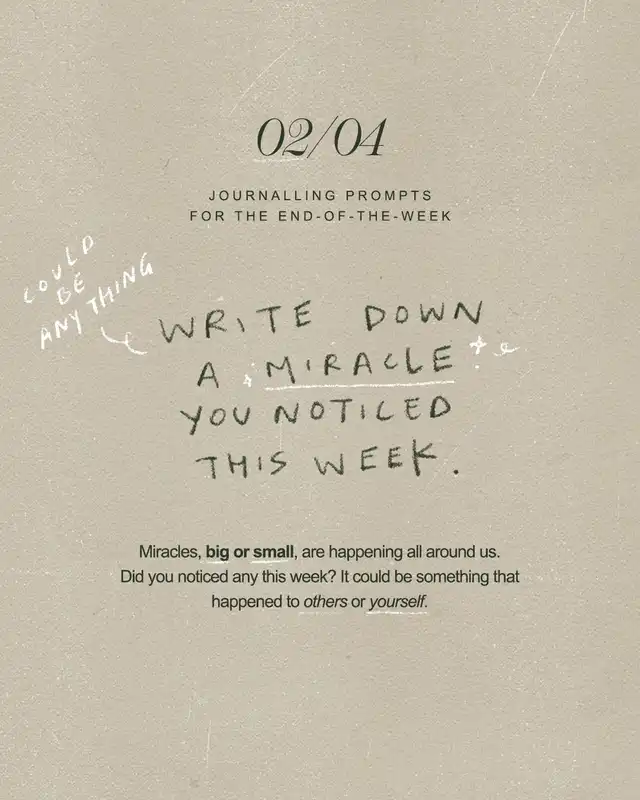 02/04
JOURNALLING PROMPTS
FOR THE END-OF-THE-WEEK
COULD
BE
ANYTHING
WRITE DOWN
A MIRACLE
YOU NOTICED
THIS WEEK.
Miracles, big or small, are happening all around us.
Did you noticed any this week? It could be something that
happened to others or yourself.